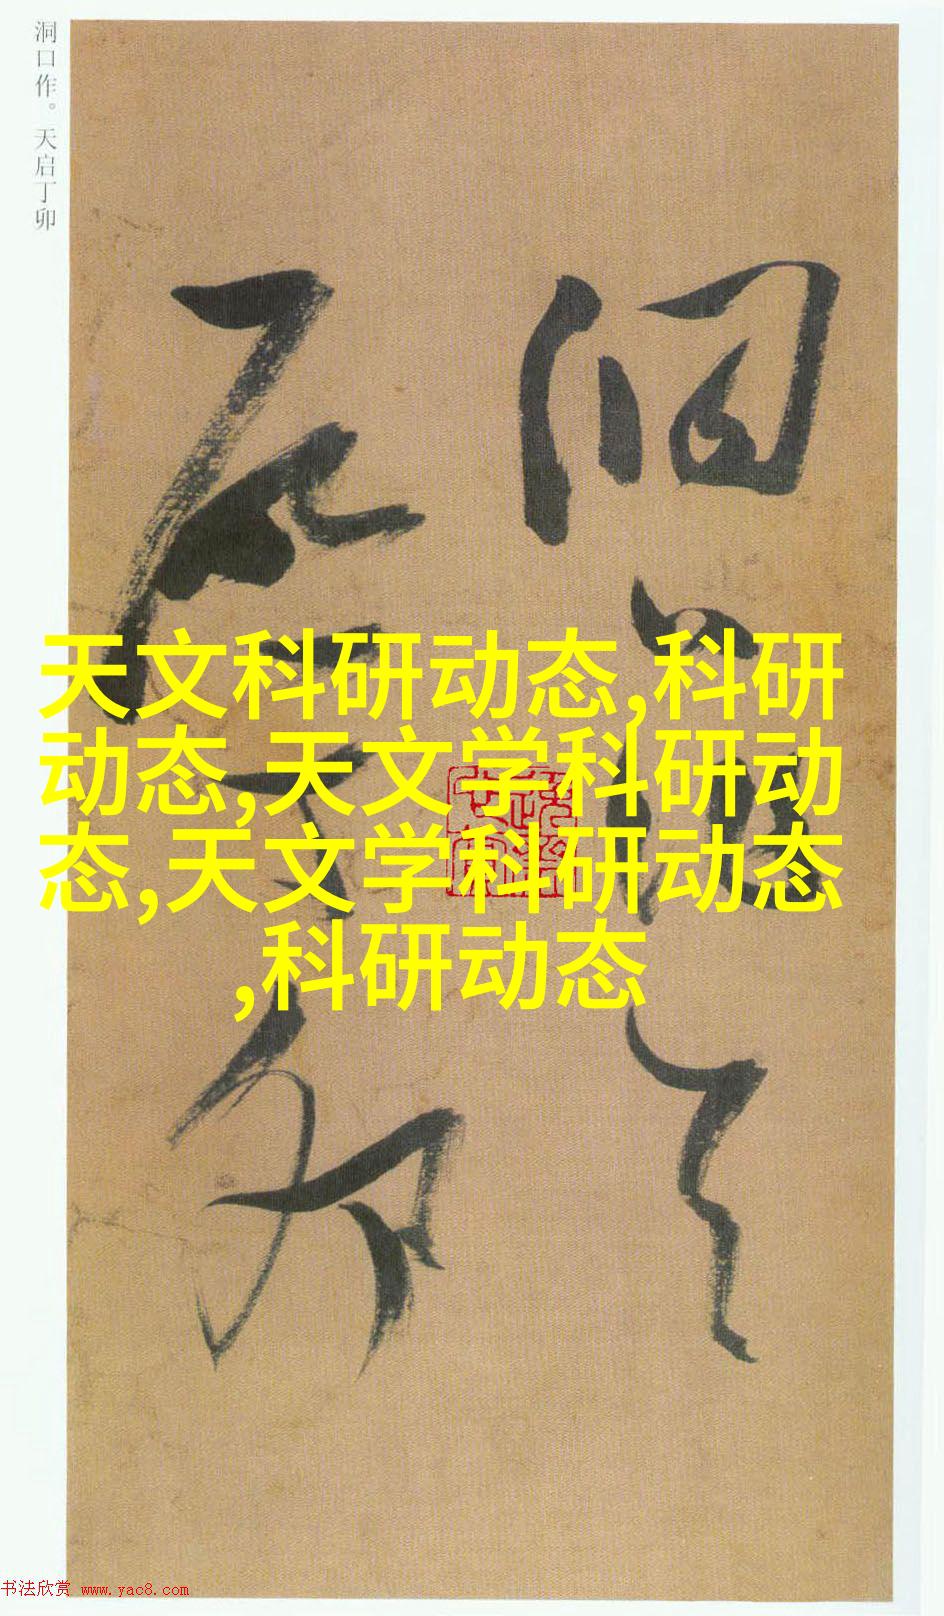 洞口作。天启丁卯
洞口作天
启丁卯
天文科研动态,科研
动态,天文学科研动
态,天文学科研动态
,科研动态
书法欣赏 www.yac8.com